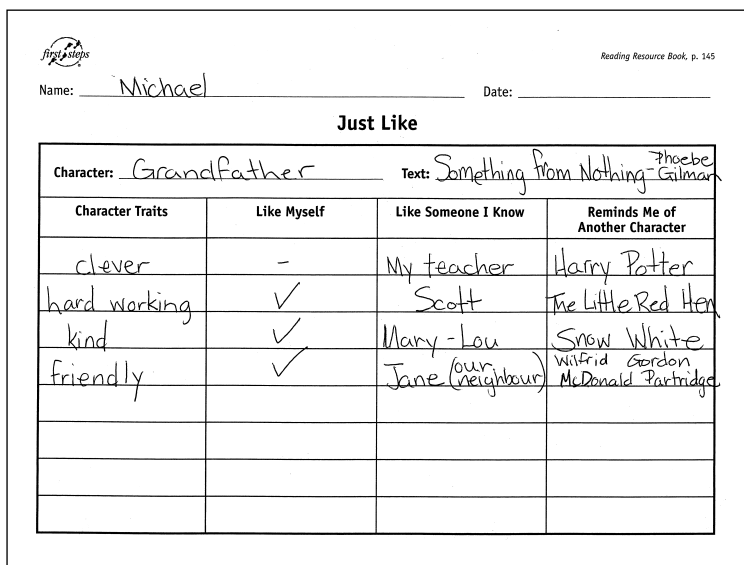 first steps
Reading Resource Book, p. 145
Name: Michael Date:
Just Like
Character: Grandfather Text: Something from Nothing - Phoebe Gilman
Character Traits Like Myself Like Someone I Know Reminds Me of Another Character
clever - My teacher Harry Potter
hard working ✓ Scott The Little Red Hen
kind ✓ Mary-Lou Snow White
friendly ✓ Jane (our neighbour) Wilfrid Gordon McDonald Partridge